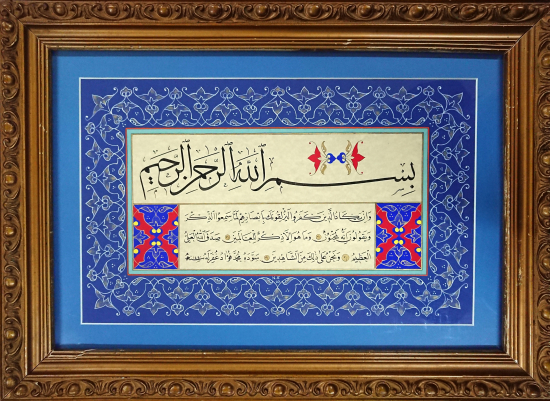 بسم الله الرحمن الرحيم
وَإِن يَكَادُ الَّذِينَ كَفَرُوا لَيُزْلِقُونَكَ بِأَبْصَارِهِمْ لَمَّا سَمِعُوا الذِّكْرَ
وَيَقُولُونَ إِنَّهُ لَمَجْنُونٌ وَمَا هُوَ إِلَّا ذِكْرٌ لِّلْعَالَمِينَ صدق الله العلي
العظيم ونحن على ذلك من الشاهدين سوده محمد فؤاد غفر له